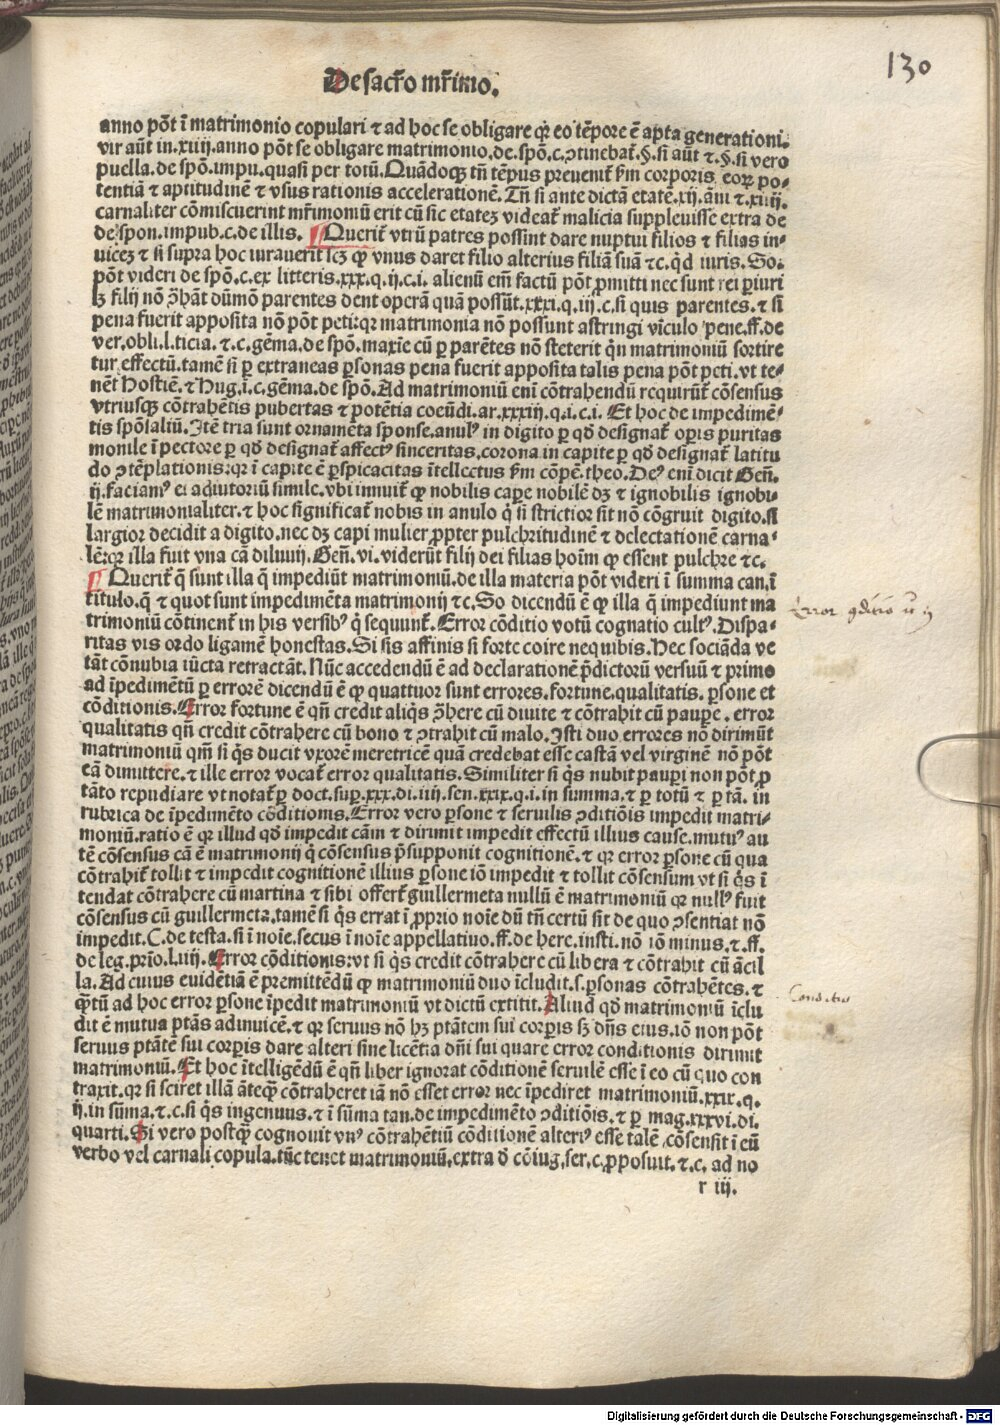 130
De sacr̄o mr̄imo.
anno pōt ī matrimonio copulari ⁊ ad hoc se obligare qꝛ eo tēpore ē apta generationi.
vir aūt in .xiiij. anno pōt se obligare matrimonio. de. spō. c. ↄtinebat̄. §. si aūt ⁊. §. si vero
puella. de spō. impu. quasi per totū. Quādoqꝫ tn̄ tēpus preuenit̄ ẜm corporis eoꝝ po⸗
tentiā ⁊ aptitudinē ⁊ vsus rationis accelerationē. Tn̄ si ante dictā etatē .xij. āni ⁊ .xiiij.
carnaliter cōmiscuerint mr̄imoniū erit cū sic etateꝫ videat̄ malicia suppleuisse extra de
de spon. impub. c. de illis. ¶ Querit̄ vtrū patres possint dare nuptui filios ⁊ filias in⸗
uiceꝫ ⁊ si supra hoc iurauerit scꝫ ꝙ vnus daret filio alterius filiā suā ⁊c. qd̄ iuris. So.
pōt videri de spō. c. ex litteris. xxx. q. ij. c. i. alienū em̄ factū pōt ꝓmitti nec sunt rei ꝑiuri
lꝫ filij nō ↄ̄hāt dūmō parentes dent operā quā possūt. xxxi. q. iij. c. si quis parentes. ⁊ si
pena fuerit apposita nō pōt peti: qꝛ matrimonia nō possunt astringi vīculo pene. ff. de
ver. obli. l. ticia. ⁊. c. gēma. de spō. maxīe cū ꝑ parētes nō steterit q̇n matrimoniū sortire
tur effectū. tamē si ꝑ extraneas ꝑsonas pena fuerit apposita talis pena pōt peti. vt te⸗
nēt Hostiē. ⁊ Hug. ī. c. gēma. de spō. Ad matrimoniū eni cōtrahendū requirūt̄ cōsensus
vtriusqꝫ cōtrahētis pubertas ⁊ potētia coeūdi. ar. xxxiij. q. i. c. i. Et hoc de impedimē⸗
tis spōsaliū. Itē tria sunt ornamēta sponse. anulꝰ in digito ꝑ qd̄ designat̄ oꝑis puritas
monile ī pectore ꝑ qd̄ designat̄ affectꝰ sinceritas. corona in capite ꝑ qd̄ designat̄ latitu
do ↄtēplationis: qꝛ ī capite ē ꝑspicacitas ītellectus ẜm cōpē. theo. Deꝰ eni dicit Geñ.
ij. faciamꝰ ei adiutoriū simile. vbi innuit̄ ꝙ nobilis caꝑe nobilē dꝫ ⁊ ignobilis ignobi⸗
lē matrimonialiter. ⁊ hoc significat̄ nobis in anulo q̇ si strictior sit nō cōgruit digito. si
largior decidit a digito. nec dꝫ capi mulier ꝓpter pulchritudinē ⁊ delectationē carna⸗
lē: qꝛ illa fuit vna cā diluuij. Geñ. vi. viderūt filij dei filias hoīm ꝙ essent pulchre ⁊c.
¶ Querit̄ q̄ sunt illa q̄ impediūt matrimoniū. de illa materia pōt videri ī summa can. ī
titulo. q̄ ⁊ quot sunt impedimēta matrimonij ⁊c. So dicendū ē ꝙ illa q̄ impediunt ma
trimoniū cōtinent̄ in his versibꝰ q̄ sequunt̄. Error cōditio votū cognatio cultꝰ. Dispa⸗
ritas vis ordo ligamē honestas. Si sis affinis si forte coire nequibis. Hec sociāda ve
tāt cōnubia iūcta retractāt. Nūc accedendū ē ad declarationē p̄dictorū versuū ⁊ primo
ad īpedimētū ꝑ errorē dicendū ē ꝙ quattuor sunt errores. fortune. qualitatis. ꝑsone et
cōditionis. Error fortune ē qn̄ credit aliq̇s ↄ̄here cū diuite ⁊ cōtrahit cū pauꝑe. error
qualitatis qn̄ credit cōtrahere cū bono ⁊ ↄtrahit cū malo. Isti duo errores nō dirimūt
matrimoniū qm̄ si q̇s ducit vxorē meretricē quā credebat esse castā vel virginē nō pōt
eā dimittere. ⁊ ille error vocat̄ error qualitatis. Similiter si q̇s nubit pauꝑi non pōt ꝓ
tāto repudiare vt notat̄ ꝑ doct. suꝑ. xxx. di. iiij. sen. xxix. q. i. in summa. ⁊ ꝑ totū ⁊ ꝑ tā. in
rubrica de īpedimēto cōditionis. Error vero ꝑsone ⁊ seruilis ↄditiōis impedit matri⸗
moniū. ratio ē qꝛ illud qd̄ impedit cām ⁊ dirimit impedit effectū illius cause. mutuꝰ au
tē cōsensus cā ē matrimonij q̇ cōsensus p̄supponit cognitionē. ⁊ qꝛ error ꝑsone cū qua
cōtrahit̄ tollit ⁊ impedit cognitionē illius ꝑsone iō impedit ⁊ tollit cōsensum vt si q̇s ī
tendat cōtrahere cū martina ⁊ sibi offert̄ guillermeta nullū ē matrimoniū qꝛ nullꝰ fuit
cōsensus cū guillermeta. tamē si q̇s errat ī ꝓprio noīe dū tn̄ certū sit de quo ↄsentiat nō
impedit. C. de testa. si ī noīe. secus ī noīe appellatiuo. ff. de here. insti. nō iō minus. ⁊. ff.
de leg. prīo. l. iiij. Error cōditionis: vt si q̇s credit cōtrahere cū libera ⁊ cōtrahit cū ācil
la. Ad cuius euidētiā ē premittēdū ꝙ matrimoniū duo īcludit. s. ꝑsonas cōtrahētes. ⁊
q̄tū ad hoc error ꝑsone īpedit matrimoniū vt dictū extitit. Aliud qd̄ matrimoniū īclu
dit ē mutua ptās adinuicē. ⁊ qꝛ seruus nō hꝫ ptātem sui corꝑis sꝫ dn̄s eius. iō non pōt
seruus ptātē sui corꝑis dare alteri sine licētia dn̄i sui quare error conditionis dirimit
matrimoniū. Et hoc ītelligēdū ē qn̄ liber ignorat cōditionē seruilē esse ī eo cū quo con
traxit. qꝛ si sciret illā āteq̄ cōtraheret iā nō esset error nec īpediret matrimoniū. xxix. q.
ij. in sūma. ⁊. c. si q̇s ingenuus. ⁊ ī sūma tan. de impedimēto ↄditiōis. ⁊ ꝑ mag. xxxvi. di.
quarti. Si vero postq̄ cognouit vnꝰ cōtrahētiū cōditionē alteriꝰ esse talē cōsensit ī eū
verbo vel carnali copula. tūc tenet matrimoniū. extra d̄ cōiug. ser. c. ꝓposuit. ⁊. c. ad no
r iij.
Error ↄditio
Conditio
Digitalisierung gefördert durch die Deutsche Forschungsgemeinschaft - DFG